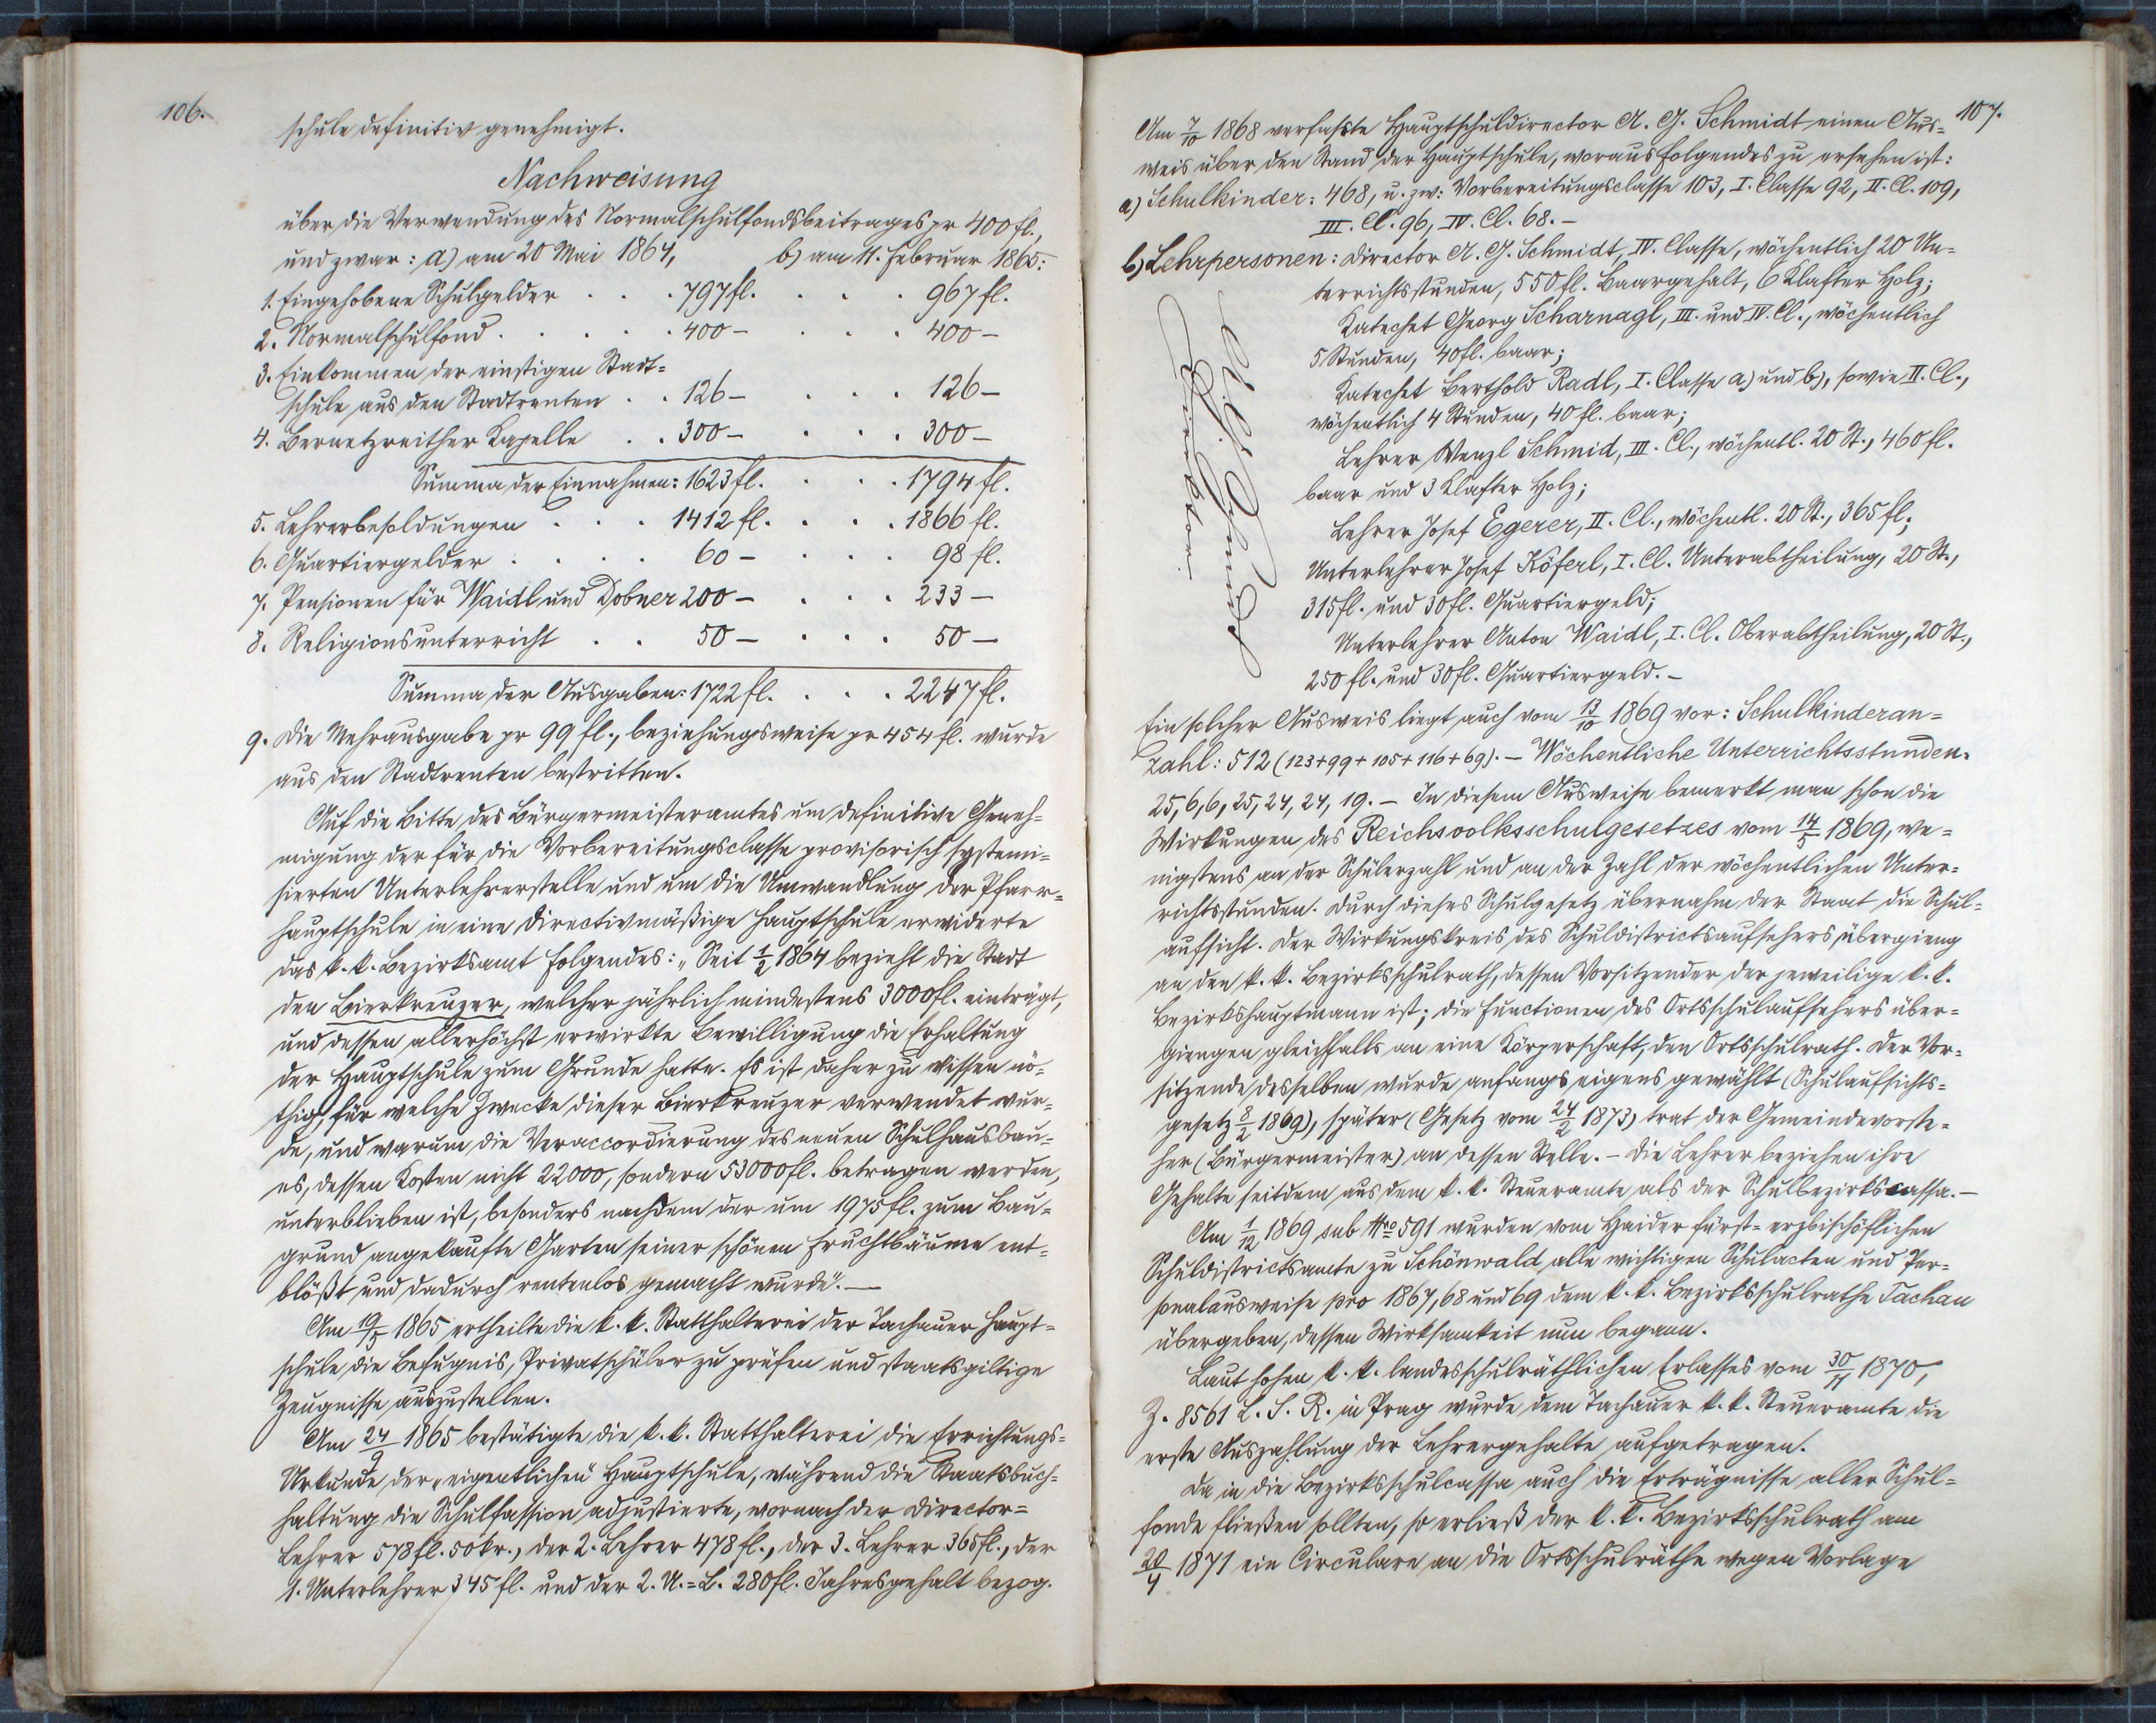 106.
schule definitiv genehmigt.
Nachweisung
über die Verwendung des Normalschulfondsbeitrages pr 400 fl.,
und zwar: a) am 20 Mai 1864, b) am 11. Februar 1865:
1. Eingehobene Schulgelder . . . 797 fl. . . . 967 fl.
2. Normalschulfond . . . . . 400 – . . . 400 –
3. Einkommen der einstigen Stadt=
schule aus den Stadtrenten . . 126 – . . . 126 –
4. Bernetzreither Kapelle . . 300 – . . . 300 –
Summa der Einnahmen: 1623 fl. . . . 1794 fl.
5. Lehrerbesoldungen . . . 1412 fl. . . . 1866 fl.
6. Quartiergelder . . . . 60 – . . . 98 fl.
7. Pensionen für Waidl und Dobner 200 – . . . 233 –
8. Religionsunterricht . . 50 – . . . 50 –
Summa der Ausgaben: 1722 fl. . . . 2247 fl.
9. Die Mehrausgabe pr 99 fl., beziehungsweise pr 454 fl. wurde
aus den Stadtrenten bestritten.
Auf die Bitte des Bürgermeisteramtes um definitive Geneh=
migung der für die Vorbereitungsclasse provisorisch systemi=
sierten Unterlehrerstelle und um die Umwandlung der Pfarr=
hauptschule in eine directivmäßige Hauptschule erwiderte
das k. k. Bezirksamt Folgendes: „Seit 1/2 1864 bezieht die Stadt
den Bierkreuzer, welcher jährlich mindestens 3000 fl. einträgt,
und dessen allerhöchst erwirkte Bewilligung die Erhaltung
der Hauptschule zum Grunde hatte. Es ist daher zu wissen nö=
thig, für welche Zwecke dieser Bierkreuzer verwendet wur=
de, und warum die Veraccordierung des neuen Schulhausbau=
es, dessen Kosten nicht 22000, sondern 53000 fl. betragen werden,
unterblieben ist, besonders nachdem der um 1975 fl. zum Bau=
grund angekaufte Garten seiner schönen Fruchtbäume ent=
blößt und dadurch rentenlos gemacht wurde". —
Am 19/5 1865 ertheilte die k. k. Statthalterei der Tachauer Haupt=
schule die Befugnis, Privatschüler zu prüfen und staatsgiltige
Zeugnisse auszustellen.
Am 24/9 1865 bestätigte die k. k. Statthalterei die Errichtungs=
Urkunde der „eigentlichen" Hauptschule, während die Staatsbuch=
haltung die Schulfassion adjustierte, wornach der Director=
Lehrer 578 fl. 50 kr., der 2. Lehrer 478 fl., der 3. Lehrer 365 fl., der
1. Unterlehrer 345 fl. und der 2. U.=L. 280 fl. Jahresgehalt bezog.
107.
Am 7/10 1868 verfaßte Hauptschuldirector A. G. Schmidt einen Aus=
weis über den Stand der Hauptschule, woraus folgendes zu ersehen ist:
a) Schulkinder: 468, u. zw: Vorbereitungsclasse 103, I. Classe 92, II. Cl. 109,
III. Cl. 96, IV. Cl. 68. –
b) Lehrpersonen: Director A. G. Schmidt, IV. Classe, wöchentlich 20 Un=
terrichtsstunden, 550 fl. Baargehalt, 6 Klafter Holz;
Katechet Georg Scharnagl, III. und IV. Cl., wöchentlich
5 Stunden, 40 fl. baar;
Katechet Berthold Radl, I. Classe a) und b), sowie II. Cl.,
wöchentlich 4 Stunden, 40 fl. baar;
Lehrer Wenzl Schmid, III. Cl., wöchentl. 20 St., 460 fl.
baar und 3 Klafter Holz;
Lehrer Josef Egerer, II. Cl., wöchentl. 20 St., 365 fl.;
Unterlehrer Josef Köferl, I. Cl. Unterabtheilung, 20 St.,
315 fl. und 30 fl. Quartiergeld;
Unterlehrer Anton Waidl, I. Cl. Oberabtheilung, 20 St.,
250 fl. und 30 fl. Quartiergeld. –
A. G. Schmidt
Director.
Ein solcher Ausweis liegt auch vom 13/10 1869 vor: Schulkinderan=
zahl: 512 (123+99+105+116+69). – Wöchentliche Unterrichtsstunden:
25, 6, 6, 25, 24, 24, 19. – In diesem Ausweise bemerkt man schon die
Wirkungen des Reichsvolksschulgesetzes vom 14/5 1869, we=
nigstens an der Schülerzahl und an der Zahl der wöchentlichen Unter=
richtsstunden. Durch dieses Schulgesetz übernahm der Staat die Schul=
aufsicht. Der Wirkungskreis des Schuldistrictsaufsehers übergieng
an den k. k. Bezirksschulrath, dessen Vorsitzender der jeweilige k. k.
Bezirkshauptmann ist; die Functionen des Ortsschulaufsehers über=
giengen gleichfalls an eine Körperschaft, den Ortsschulrath. Der Vor=
sitzende desselben wurde anfangs eigens gewählt (Schulaufsichts=
gesetz 8/2 1869), später (Gesetz vom 24/2 1873) trat der Gemeindevorste=
her (Bürgermeister) an dessen Stelle. – Die Lehrer beziehen ihre
Gehalte seitdem aus dem k. k. Steueramte als der Schulbezirkscassa. —
Am 1/12 1869 sub Nro 591 wurden vom Haider fürst=erzbischöflichen
Schuldistrictsamte zu Schönwald alle wichtigen Schulacten und Per=
sonalausweise pro 1867, 68 und 69 dem k. k. Bezirksschulrathe Tachau
übergeben, dessen Wirksamkeit nun begann.
Laut hohen k. k. landesschulräthlichen Erlasses vom 30/11 1870,
Z. 8561 L. S. R. in Prag wurde dem Tachauer k. k. Steueramte die
erste Auszahlung der Lehrergehalte aufgetragen.
Da in die Bezirksschulcassa auch die Erträgnisse aller Schul=
fonde fließen sollten, so erließ der k. k. Bezirksschulrath am
20/4 1871 ein Circulare an die Ortsschulräthe wegen Vorlage